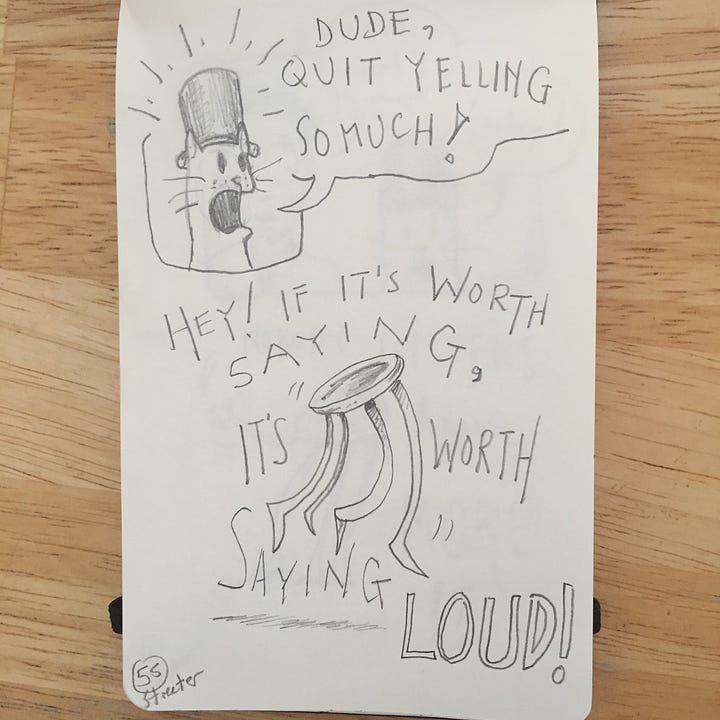 DUDE,
QUIT YELLING
SO MUCH!
HEY! IF IT'S WORTH
SAYING,
IT'S WORTH
SAYING
LOUD!
55
Streeter